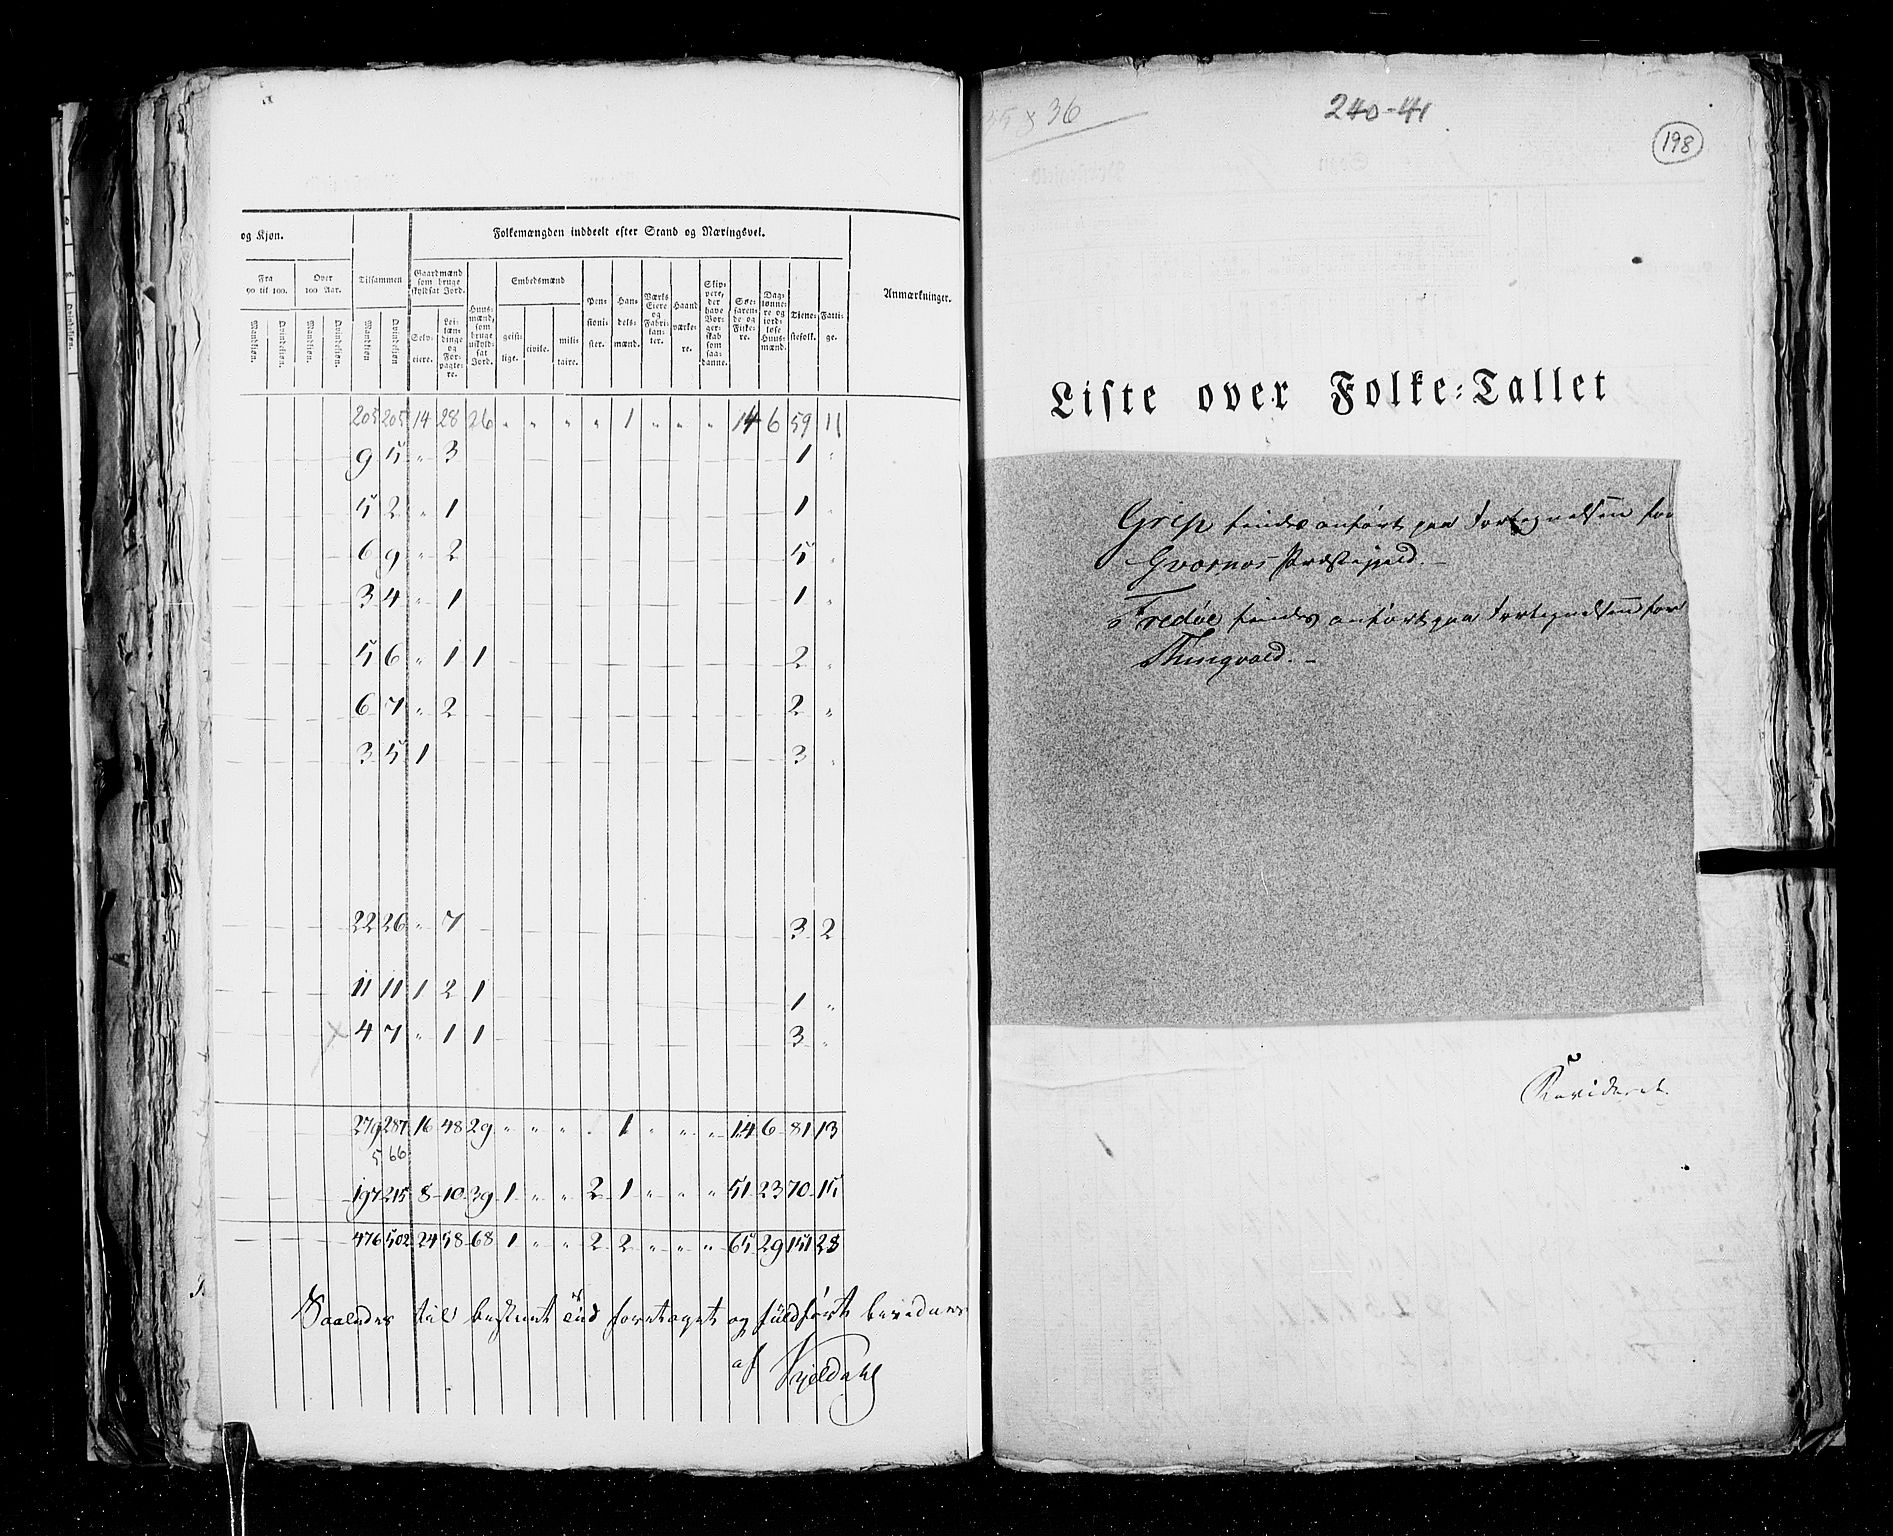 og Kjøn.
Folkemængden inddeelt efter Stand og Næringsvei.
Fra 90 til 100.
Over 100 Aar.
Tilsammen
Gaardmænd som bruge skyldsat Jord.
Huusmænd, som bruge uskyldsat Jord.
Embedsmænd
Pensionister.
Handelsmænd.
Værks Eiere og Fabrikanter.
Haandværkere.
Skippere, der have Borgerskab som saadanne.
Søefarende og Fiskere.
Daglønnere og jordløse Huusmænd.
Tjenestefolk.
Fattige.
Anmærkninger.
Mandkiøn. Qvindekiøn. Mandkiøn. Qvindekiøn. Mandkiøn Qvindekiøn
Selveiere.
Leilændinge og Forpagtere.
geistlige.
civile.
militaire.
205 205 14 28 26 „ „ „ „ 1 „ „ „ 14 6 59 11
9 5 „ 3 1 „
5 2 „ 1 1 „
6 9 „ 2 5 „
3 4 „ 1 1 „
5 6 „ 1 1 2 „
6 7 „ 2 2 „
3 5 1 3 „
22 26 „ 7 3 2
11 11 1 2 1 1 „
4 7 „ 1 1 3 „
279 287 16 48 29 „ „ „ „ 1 „ „ „ 14 6 81 13
566
197 215 8 10 39 1 „ „ 2 1 „ „ „ 51 23 70 15
476 502 24 58 68 1 „ „ 2 2 „ „ „ 65 29 151 28
Saaledes til bestemt Tid foretaget og fuldført bevidnes
af
36
240-41
198
Liste over Folke-Tallet
Grip findes anført paa Fortegnelsen for
Qvernes Præstegjeld. –
Fredøe findes anført paa Fortegnelsen for
Thingvold. –
Revideret